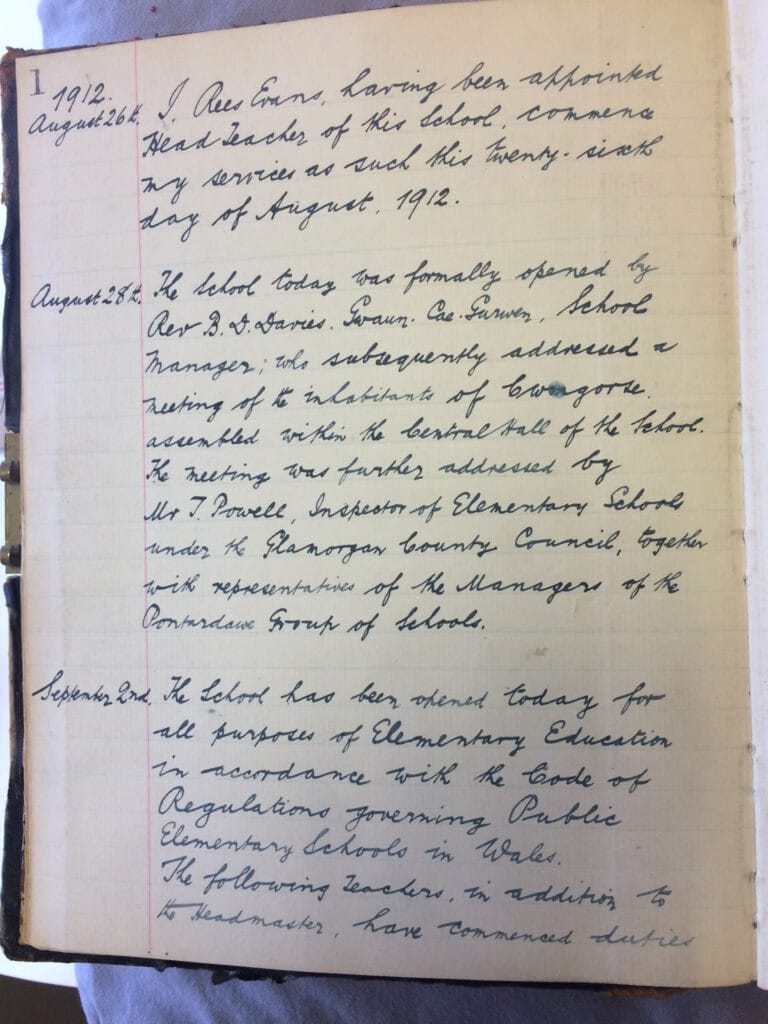 1
1912.
August 26th. I, Rees Evans, having been appointed
Head Teacher of this School, commence
my services as such this twenty-sixth
day of August, 1912.
August 28th. The School today was formally opened by
Rev B. D. Davies. Gwaun-Cae-Gurwen, School
Manager; who subsequently addressed a
meeting of the inhabitants of Cwmgorse.
assembled within the Central Hall of the School.
The meeting was further addressed by
Mr T. Powell, Inspector of Elementary Schools
under the Glamorgan County Council, together
with representatives of the Managers of the
Pontardawe Group of Schools.
September 2nd. The School has been opened today for
all purposes of Elementary Education
in accordance with the Code of
Regulations governing Public
Elementary Schools in Wales.
The following Teachers, in addition to
the Headmaster, have commenced duties